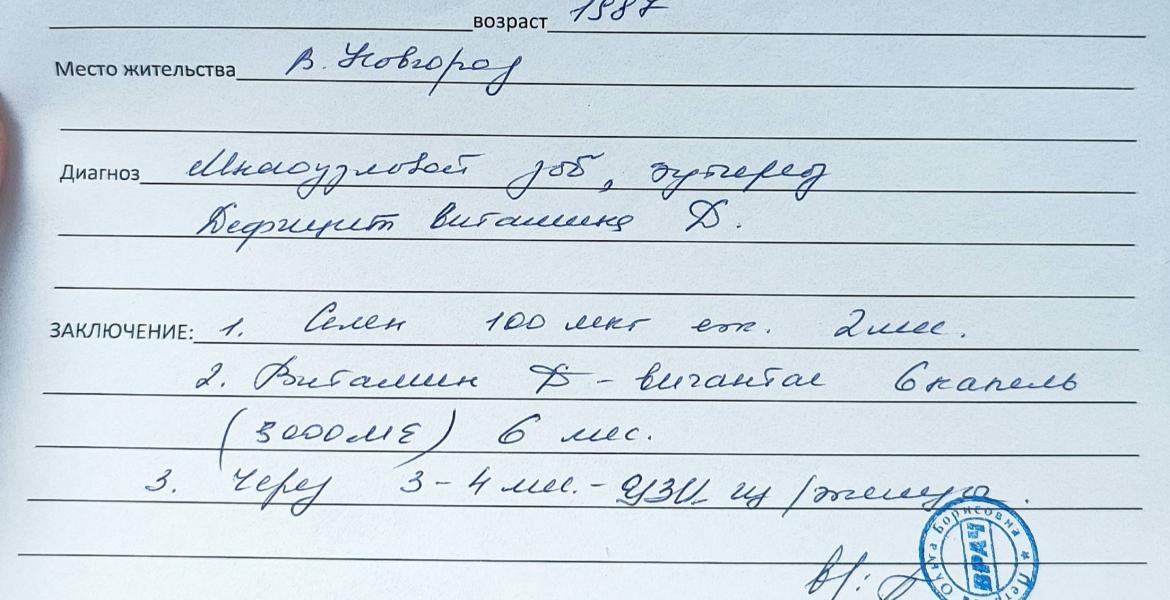 возраст 1987
Место жительства В. Новгород
Диагноз Многоузловой зоб, эутиреоз
Дефицит витамина D.
ЗАКЛЮЧЕНИЕ: 1. Селен 100 мкг еж. 2 мес.
2. Витамин D - вигантол 6 капель
(3000 МЕ) 6 мес.
3. Через 3-4 мес. - УЗИ щ/железы.
Ольга Борисовна
ВРАЧ